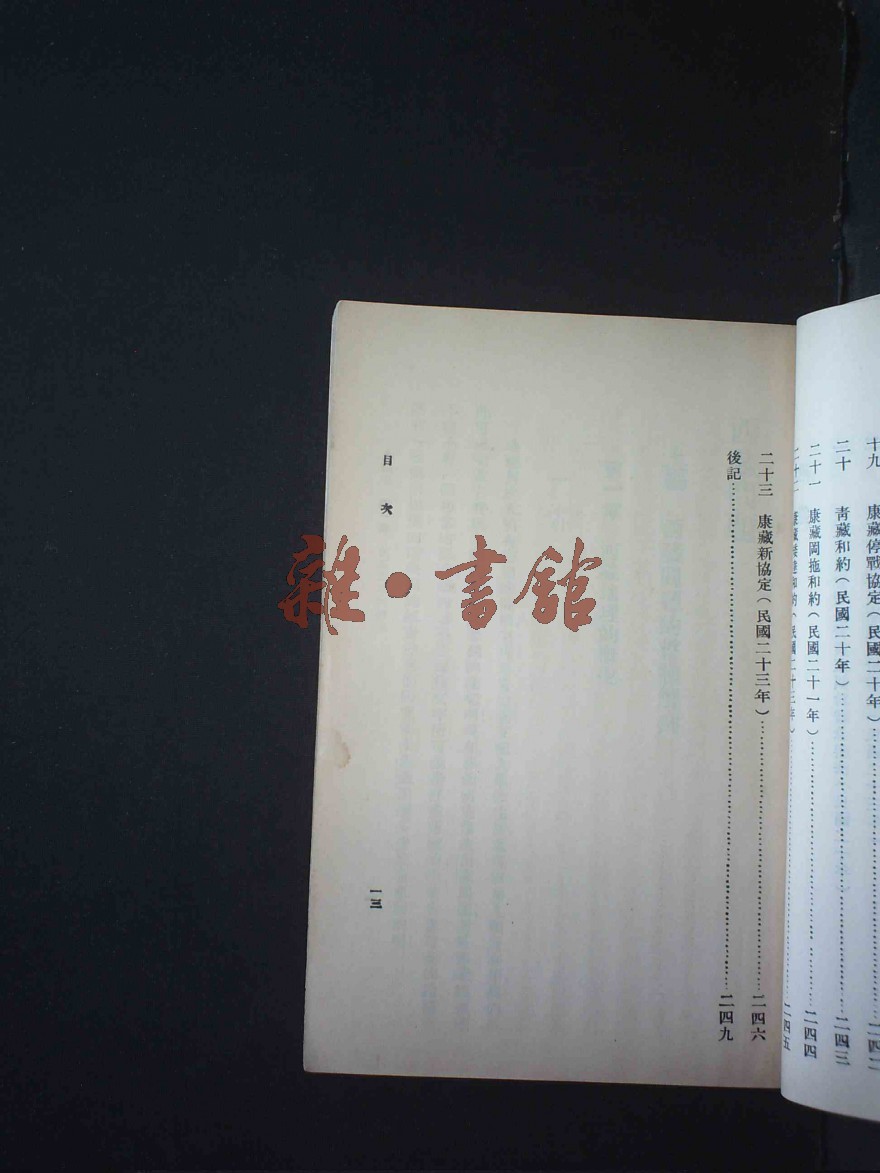 十九 康藏停戰協定(民國二十年)……二四二
二十 青藏和約(民國二十年)……二四三
二十一 康藏岡拖和約(民國二十一年)……二四四
康藏 和約(民國二十三年)……二四五
二十三 康藏新協定(民國二十三年)……二四六
後記……二四九
目次
一三
雜·書館